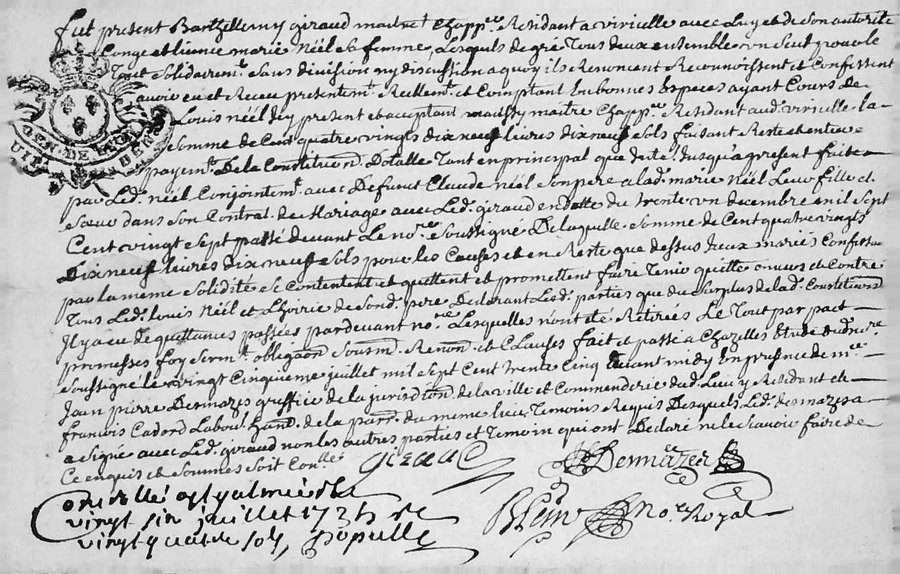 fut present Barthellemy giraud maitre Chappr. Residant a virieulle avec Luy et de son autorité
Congé et licence marie Néel sa femme, Lesquels de gré Tous deux ensemble un seul pour le
Tout Solidairemt. Sans division ny discussion a quoy ils Renoncent Reconnoissent et Confessent
avoir eu et Receu presentemt. Reellemt. et Comptant En bonnes Especes ayant Cours de
Louis néel Icy present et acceptant maitre Chappr. Residant aud. virieulle la
Somme de Cent quatre vingts dix neuf livres dix neuf Sols faisant Reste et entier
payemt. De La Constitution Dotalle Tant en principal que Jusqu'a present faite
par Led. néel Conjointemt. avec Deffunt Claude néel Son pere a lad. marie Néel Leur fille et
Sœur dans Son Contrat de Mariage avec Led. giraud en datte du trente un decembre mil Sept
Cent vingt Sept passé devant Le nore. Soussigné De laquelle Somme de Cent quatre vingts
Dix neuf livres dix neuf Sols pour les Causes et en Reste que dessus Iceux mariés Confessa
par la meme Solidité Se Contentent et quittent et promettent faire Tenir quitte envers et Contre
Tous Led. Louis Néel et L'hoirie de Sond. pere Declarant Lesd. parties que du Surplus de lad. Constitution
Il y a eu de quittances passées pardevant nore. Lesquelles n'ont été Retirées Le Tout par pact
promesses foy Sermt. obligaon Soumd. Renond. et Clauses fait et passé a Chazelles Etude du nore.
Soussigné le vingt Cinquieme juillet mil Sept Cent trente Cinq avant midy En presence de me.
Jean pierre Desmazes greffier de la jurisdiction de la ville et Commanderie dud. Lieu y Residant et
francois Cadord Labour. hand. de la par. du meme lieu Temoins Requis Desquels Led. desmazes a
a Signé avec Led. giraud non les autres parties et Temoin qui ont Declaré ne le Scavoir faire de
Ce enquis et Sommés Soit Conllé.
Giraud
Desmazes
Controllé a St galmier le
vingt six juillet 1735 Re
vingt quatre sols
nore. Royal